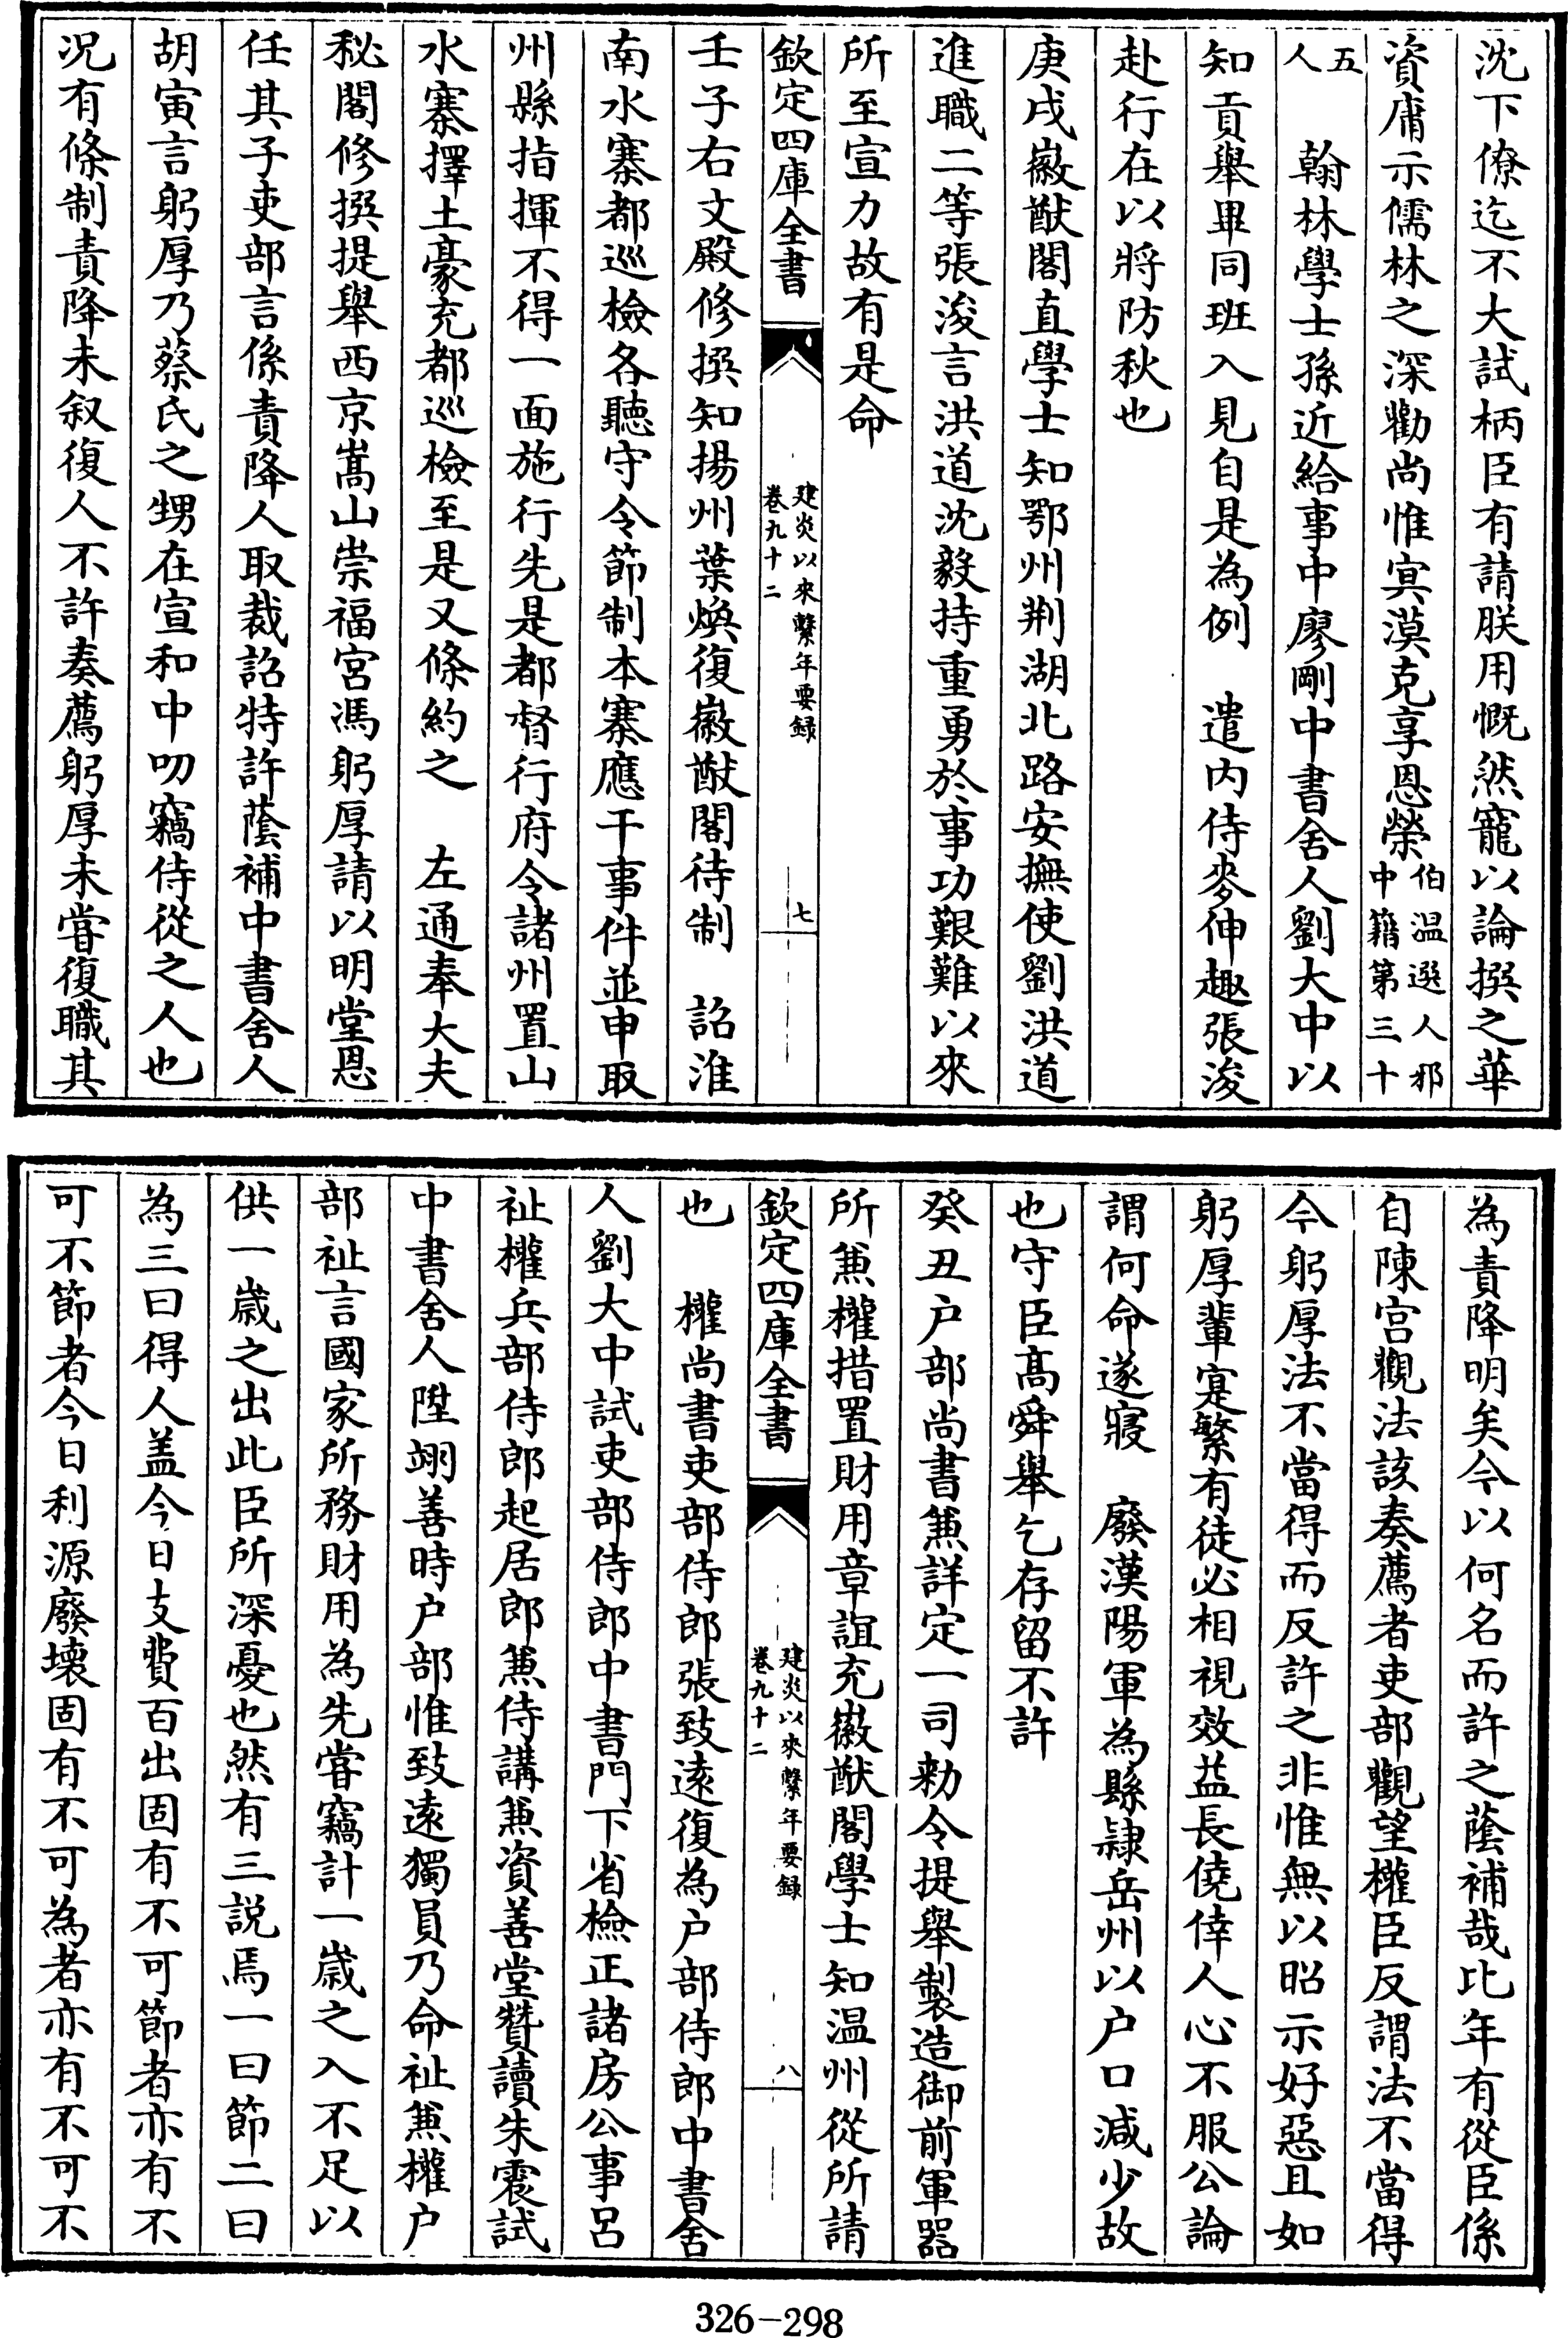 沈下僚迄不大試柄臣有請朕用慨然寵以論撰之華
資庸示儒林之深勸尚惟㝠漠克享恩榮伯温選人邪中籍第三十
五人　翰林學士孫近給事中廖剛中書舍人劉大中以
知貢舉畢同班入見自是為例　遣内侍麥伸趣張浚
赴行在以將防秋也
庚戌徽猷閣直學士知鄂州荆湖北路安撫使劉洪道
進職二等張浚言洪道沈毅持重勇於事功艱難以來
所至宣力故有是命
欽定四庫全書　建炎以來繫年要録　卷九十二　七
壬子右文殿修撰知揚州葉煥復徽猷閣待制　詔淮
南水寨都巡檢各聽守令節制本寨應干事件並申取
州縣指揮不得一面施行先是都督行府令諸州置山
水寨擇土豪充都巡檢至是又條約之　左通奉大夫
秘閣修撰提舉西京嵩山崇福宫馮躬厚請以明堂恩
任其子吏部言係責降人取裁詔特許蔭補中書舍人
胡寅言躬厚乃蔡氏之甥在宣和中叨竊侍從之人也
况有條制責降未叙復人不許奏薦躬厚未嘗復職其
為責降明矣今以何名而許之蔭補哉比年有從臣係
自陳宫觀法該奏薦者吏部觀望權臣反謂法不當得
今躬厚法不當得而反許之非惟無以昭示好惡且如
躬厚輩寔繁有徒必相視效益長僥倖人心不服公論
謂何命遂寢　廢漢陽軍為縣隸岳州以户口減少故
也守臣高舜舉乞存留不許
癸丑户部尚書兼詳定一司勅令提舉製造御前軍器
所兼權措置財用章誼充徽猷閣學士知温州從所請
欽定四庫全書　建炎以來繫年要録　卷九十二　八
也　權尚書吏部侍郎張致遠復為户部侍郎中書舍
人劉大中試吏部侍郎中書門下省檢正諸房公事吕
祉權兵部侍郎起居郎兼侍講兼資善堂贊讀朱震試
中書舍人陞翊善時户部惟致遠獨員乃命祉兼權户
部祉言國家所務財用為先嘗竊計一歲之入不足以
供一歲之出此臣所深憂也然有三説焉一曰節二曰
為三曰得人盖今日支費百出固有不可節者亦有不
可不節者今日利源廢壊固有不可為者亦有不可不
326-298